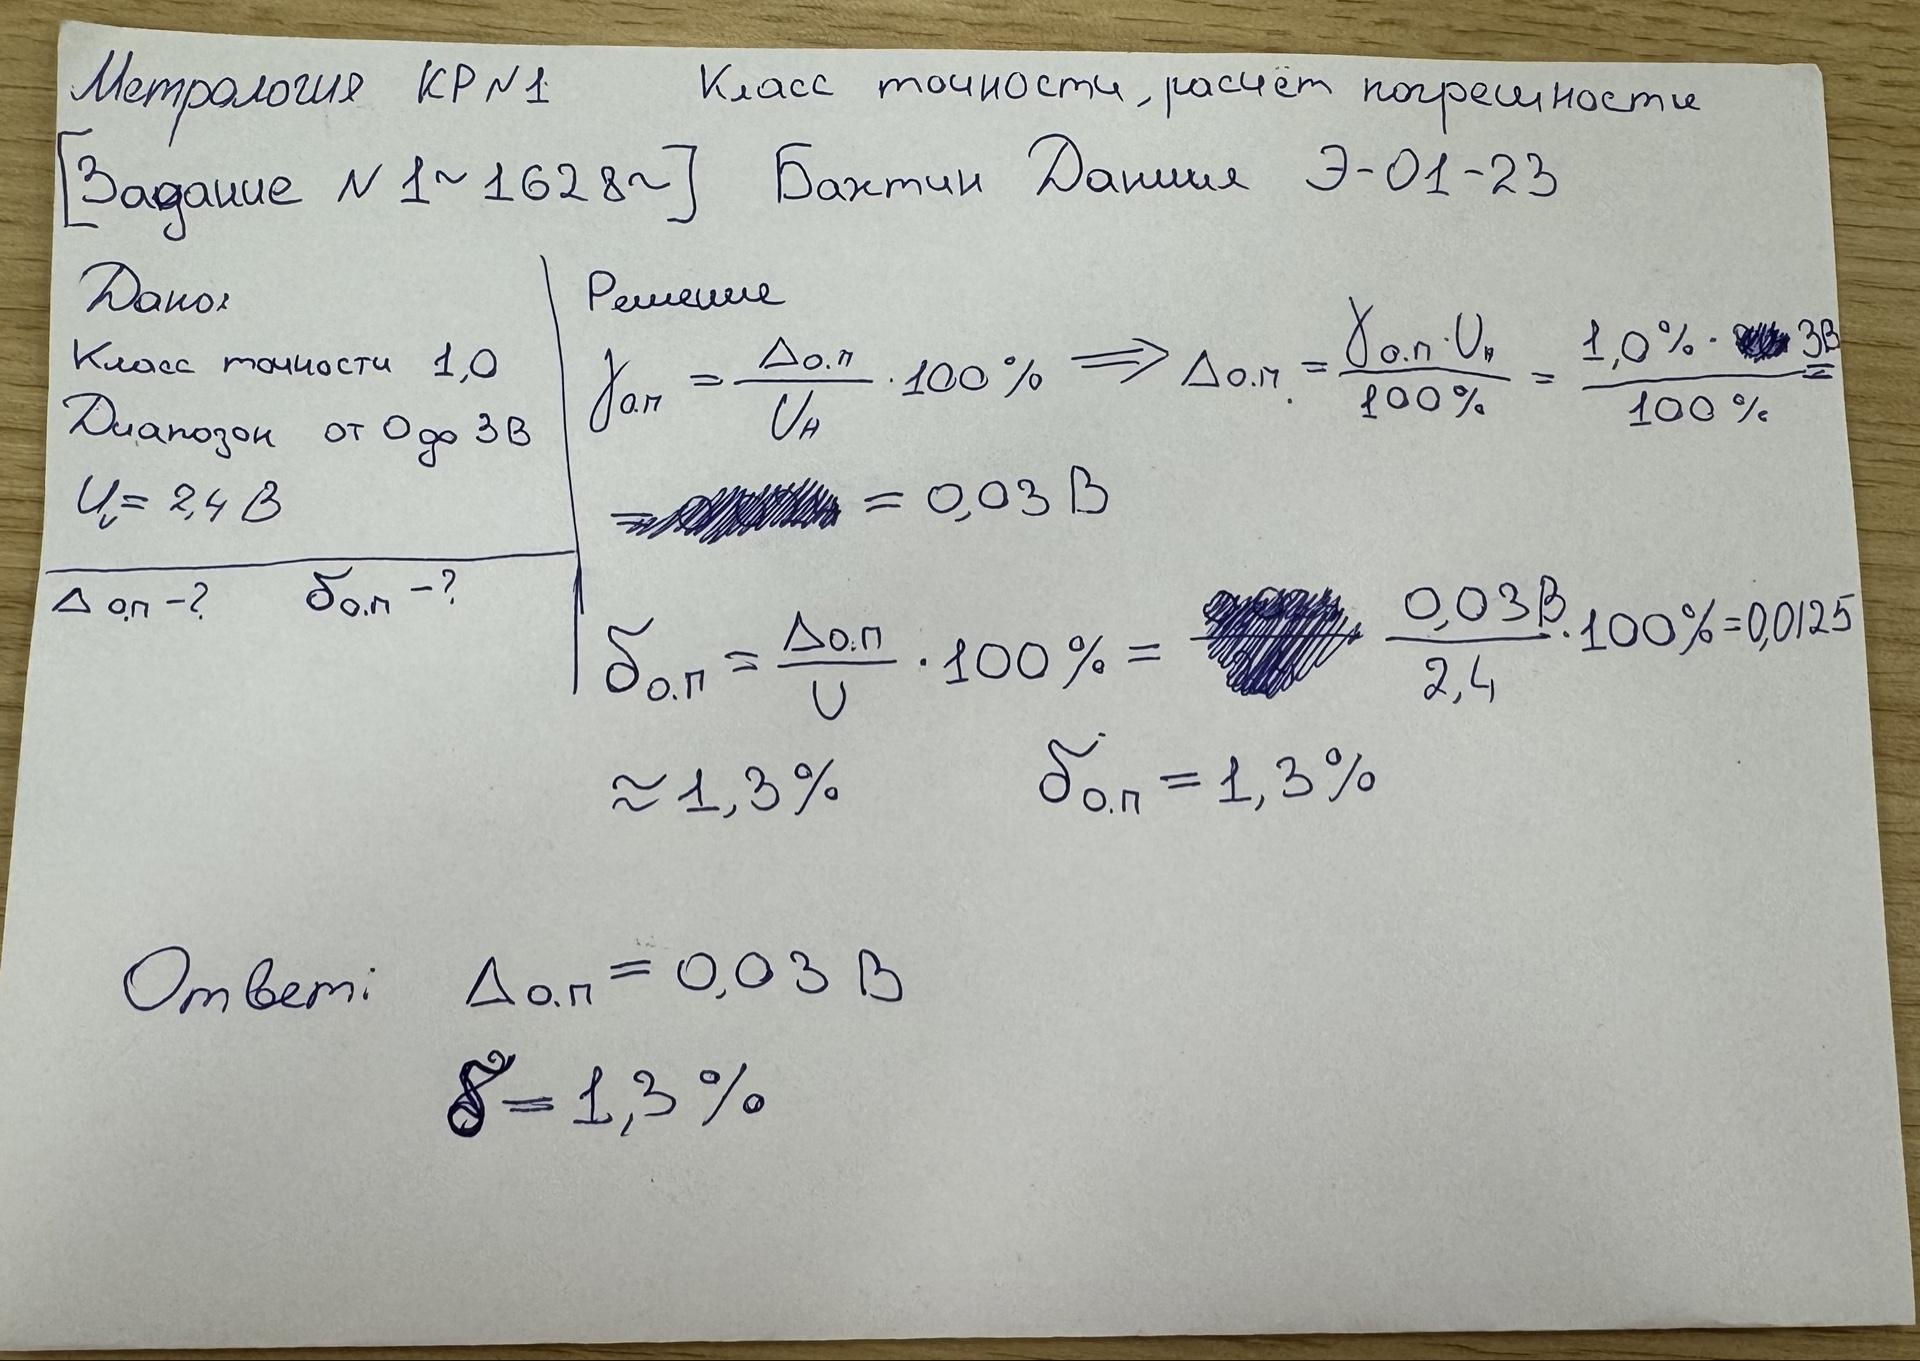 Метрология КР №1 Класс точности, расчёт погрешности
[Задание №1~1628~] Бахтин Даниил Э-01-23
Дано:
Класс точности 1,0
Диапозон от 0 до 3В
Uᵥ= 2,4 В
Δо.п -? δо.п -?
Решение
γо.п = Δо.п / Uн · 100% ⟹ Δо.п. = γо.п · Uн / 100% = 1,0% · 3В / 100% =
= = 0,03 В
δо.п = Δо.п / U · 100% = 0,03В / 2,4 · 100% = 0,0125
≈ 1,3% δо.п = 1,3%
Ответ: Δо.п = 0,03 В
δ = 1,3%